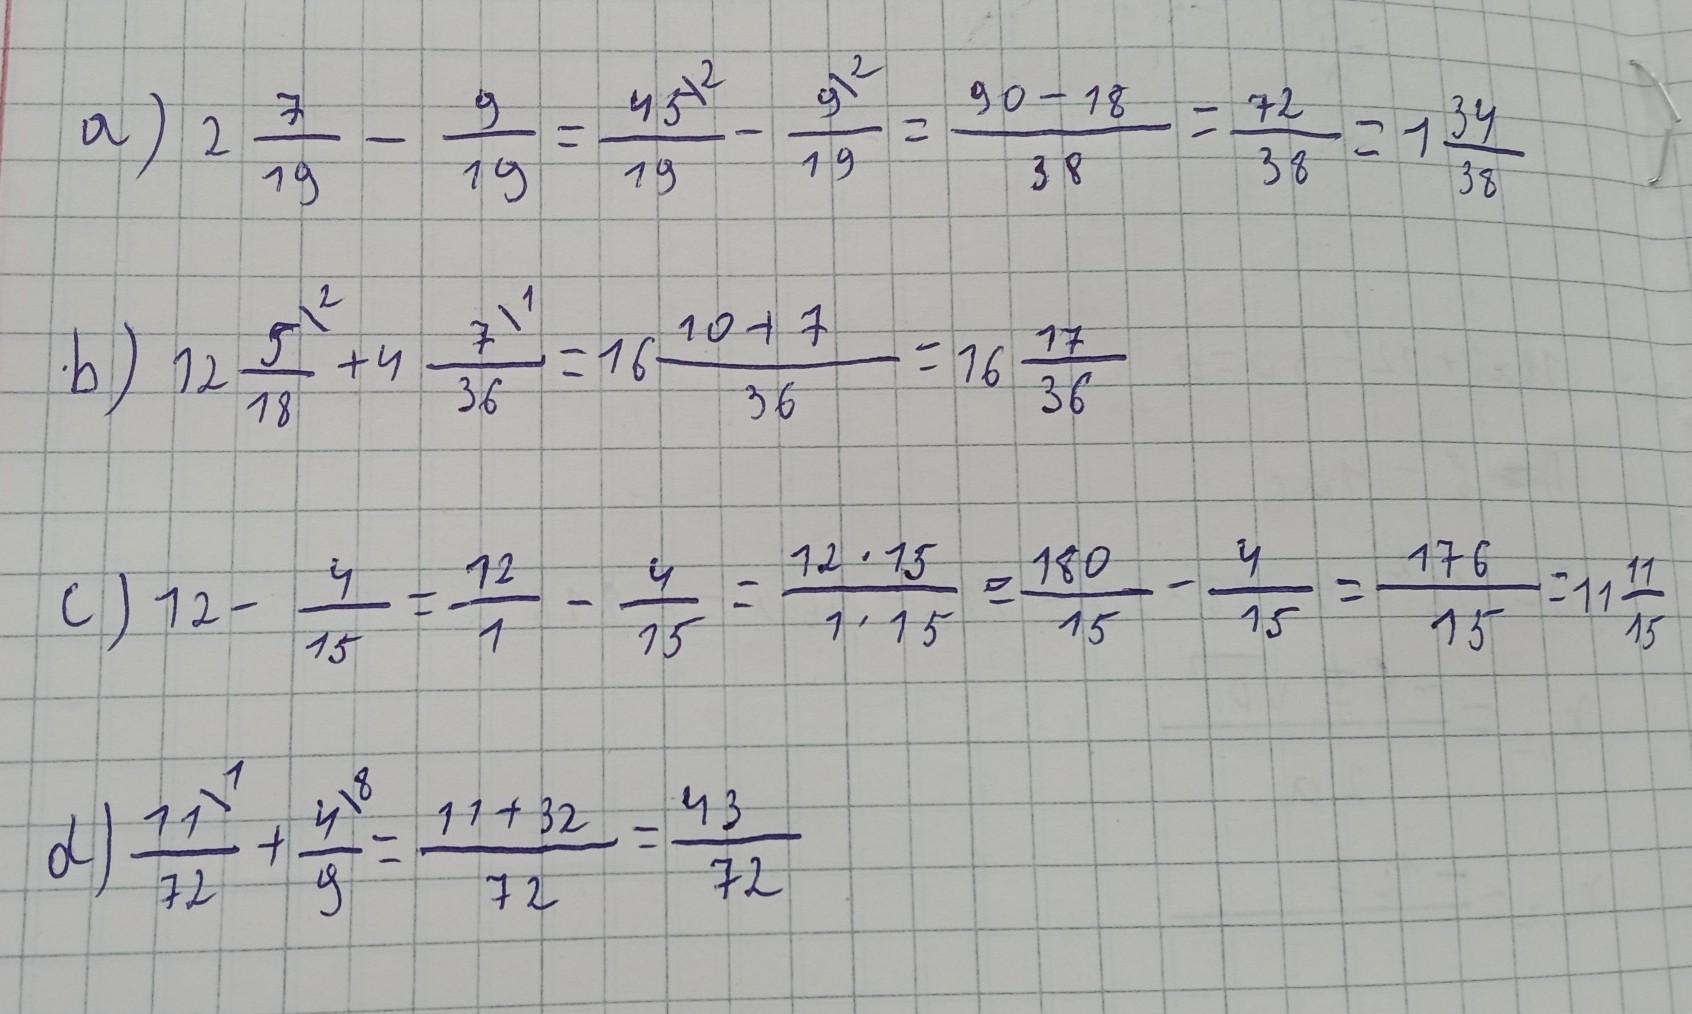 a) 2 7/19 - 9/19 = 45\2/19 - 9\2/19 = 90-18/38 = 72/38 = 1 34/38
b) 12 5\2/18 + 4 7\1/36 = 16 10+7/36 = 16 17/36
c) 12 - 4/15 = 12/1 - 4/15 = 12·15/1·15 = 180/15 - 4/15 = 176/15 = 11 11/15
d) 11\1/72 + 4\8/9 = 11+32/72 = 43/72